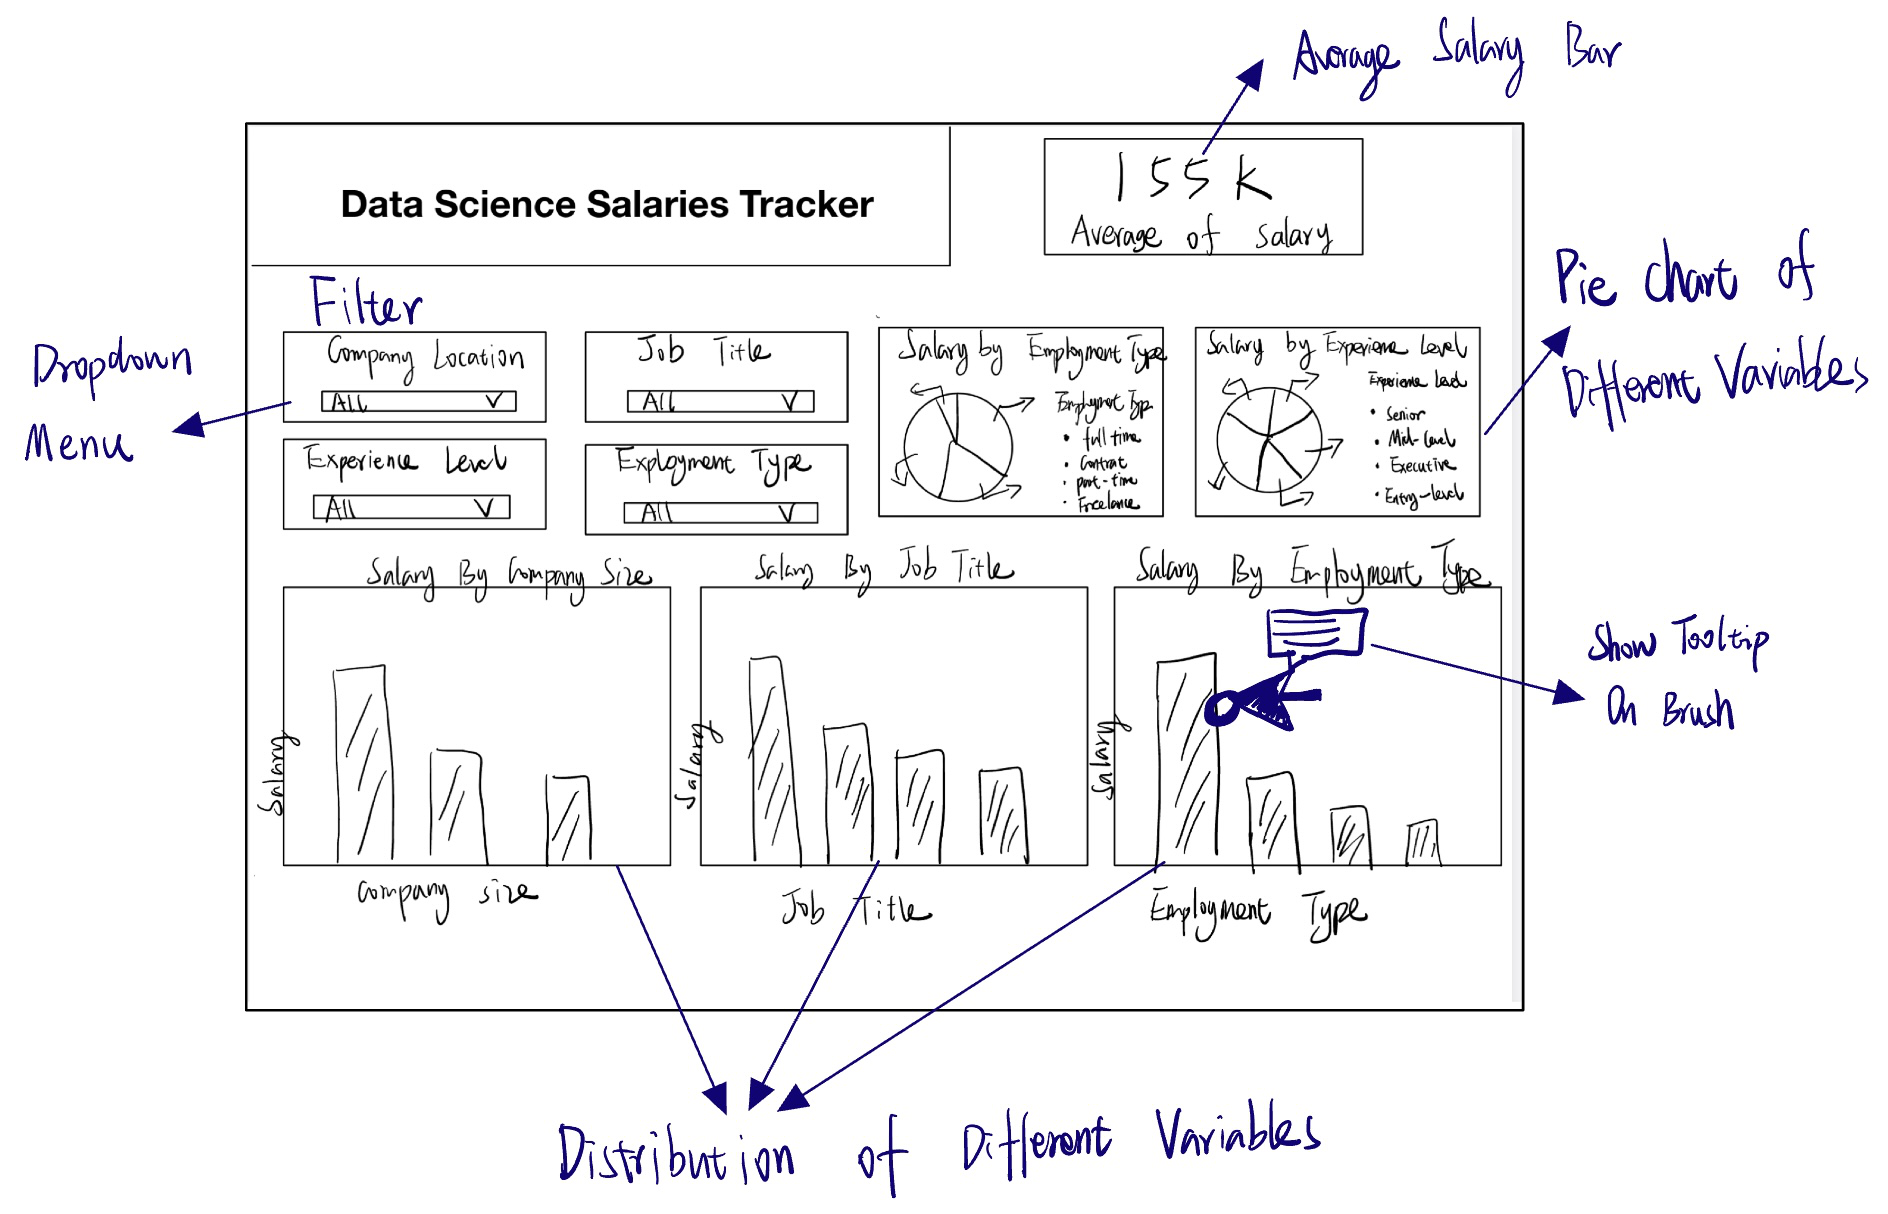 Average Salary Bar
155k
Average of Salary
Data Science Salaries Tracker
Filter
Dropdown
Menu
Company Location
All V
Job Title
All V
Experience Level
All V
Exployment Type
All V
Salary by Employment Type
Employment Type
• full time
• Contrat
• part-time
• Freelance
Salary by Experience Level
Experience Level
• Senior
• Mid-Level
• Executive
• Entry-level
Pie chart of
Different Variables
Salary By Company Size
Salary
Company size
Salary By Job Title
Salary
Job Title
Salary By Employment Type
Salary
Employment Type
Show Tooltip
On Brush
Distribution of Different Variables